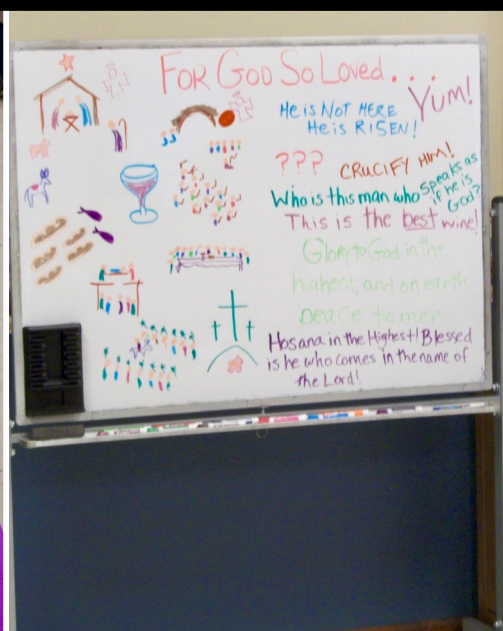 FOR GOD SO LOVED . . .
Yum!
He is NOT HERE
He is RISEN!
???
CRUCIFY HIM!
Who is this man who speaks as
if he is
God?
This is the best wine!
Glory to God in the
highest, and on earth
peace to men
Hosana in the Highest! Blessed
is he who comes in the name of
the Lord!